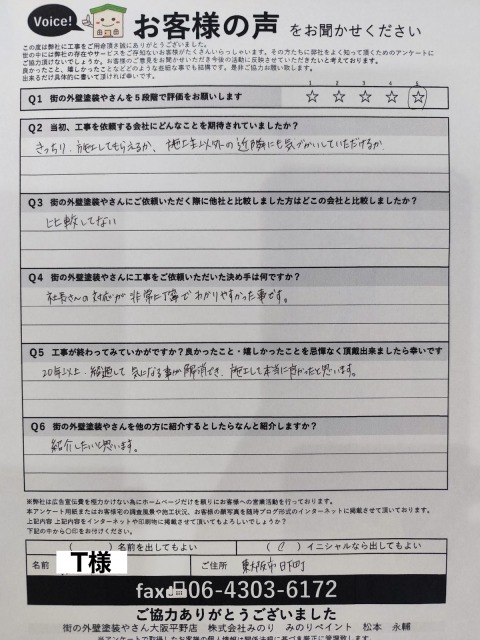 Voice!
お客様の声 をお聞かせください
この度は弊社に工事をご用命頂き誠にありがとうございました。
街の中には弊社の存在やサービスをご存知ないお客様がたくさんいらっしゃいます。その方たちに弊社をよく知って頂くためのアンケートに
ご協力頂けないでしょうか。お客様のご意見をお聞かせいただき今後の活動に反映させていただきたいと考えております。
良かったこと、嬉しかったことなどどのような些細な事でも結構です。是非ご協力お願い致します。
出来るだけ具体的に書いて頂ければ幸いです。
Q1 街の外壁塗装やさんを5段階で評価をお願いします
1 2 3 4 5
☆ ☆ ☆ ☆ ☆
Q2 当初、工事を依頼する会社にどんなことを期待されていましたか？
きっちり、施工してもらえるか、施工主以外の近隣にも気づかいしていただけるか
Q3 街の外壁塗装やさんにご依頼いただく際に他社と比較しました方はどこの会社と比較しましたか？
比較してない
Q4 街の外壁塗装やさんに工事をご依頼いただいた決め手は何ですか？
社長さんの対応が非常に丁寧でわかりやすかった事です。
Q5 工事が終わってみていかがですか？良かったこと・嬉しかったことを忌憚なく頂戴出来ましたら幸いです
20年以上、経過して気になる事が解消でき、施工して本当に良かったと思います。
Q6 街の外壁塗装やさんを他の方に紹介するとしたらなんと紹介しますか？
紹介したいと思います。
※弊社は広告宣伝費を極力かけない為にホームページだけを頼りにお客様への営業活動を行っております。
本アンケート用紙またはお客様宅の調査風景や施工状況、お客様の顔写真を随時ブログ形式のインターネットに掲載させて頂いております。
上記内容をインターネットや印刷他に掲載させて頂いてもよろしいでしょうか？
下記の中から〇印をお付けください。
( ) 名前を出してもよい ( ) イニシャルなら出してもよい
名前 T様 ご住所 東大阪市日下町
fax 06-4303-6172
ご協力ありがとうございました
街の外壁塗装やさん大阪平野店 株式会社みのり みのりペイント 松本 永輔